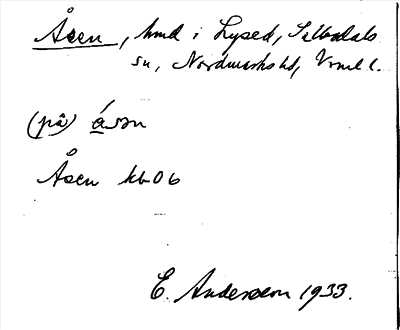 Åsen, hmd i Lysed, Sillbodals
sn, Nordmarks hd, Vrml l.
(på) åsən
Åsen kb 06
E. Andersson 1933.